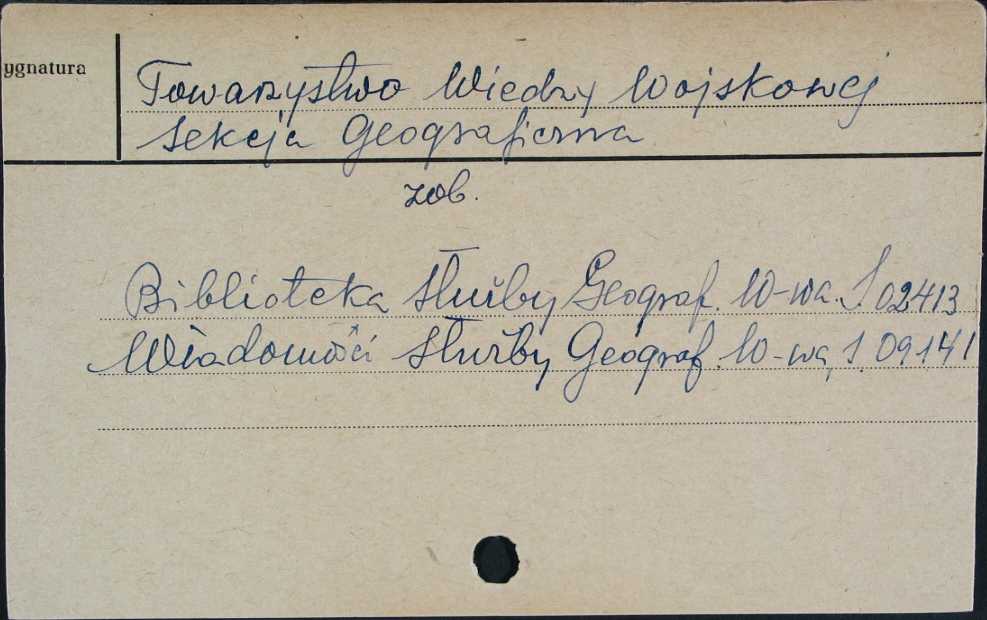 ygnatura
Towarzystwo Wiedzy Wojskowej
Sekcja Geograficzna
zob.
Biblioteka Służby Geograf. W-wa. S. 02413
Wiadomości Służby Geograf. W-wa, S. 09141